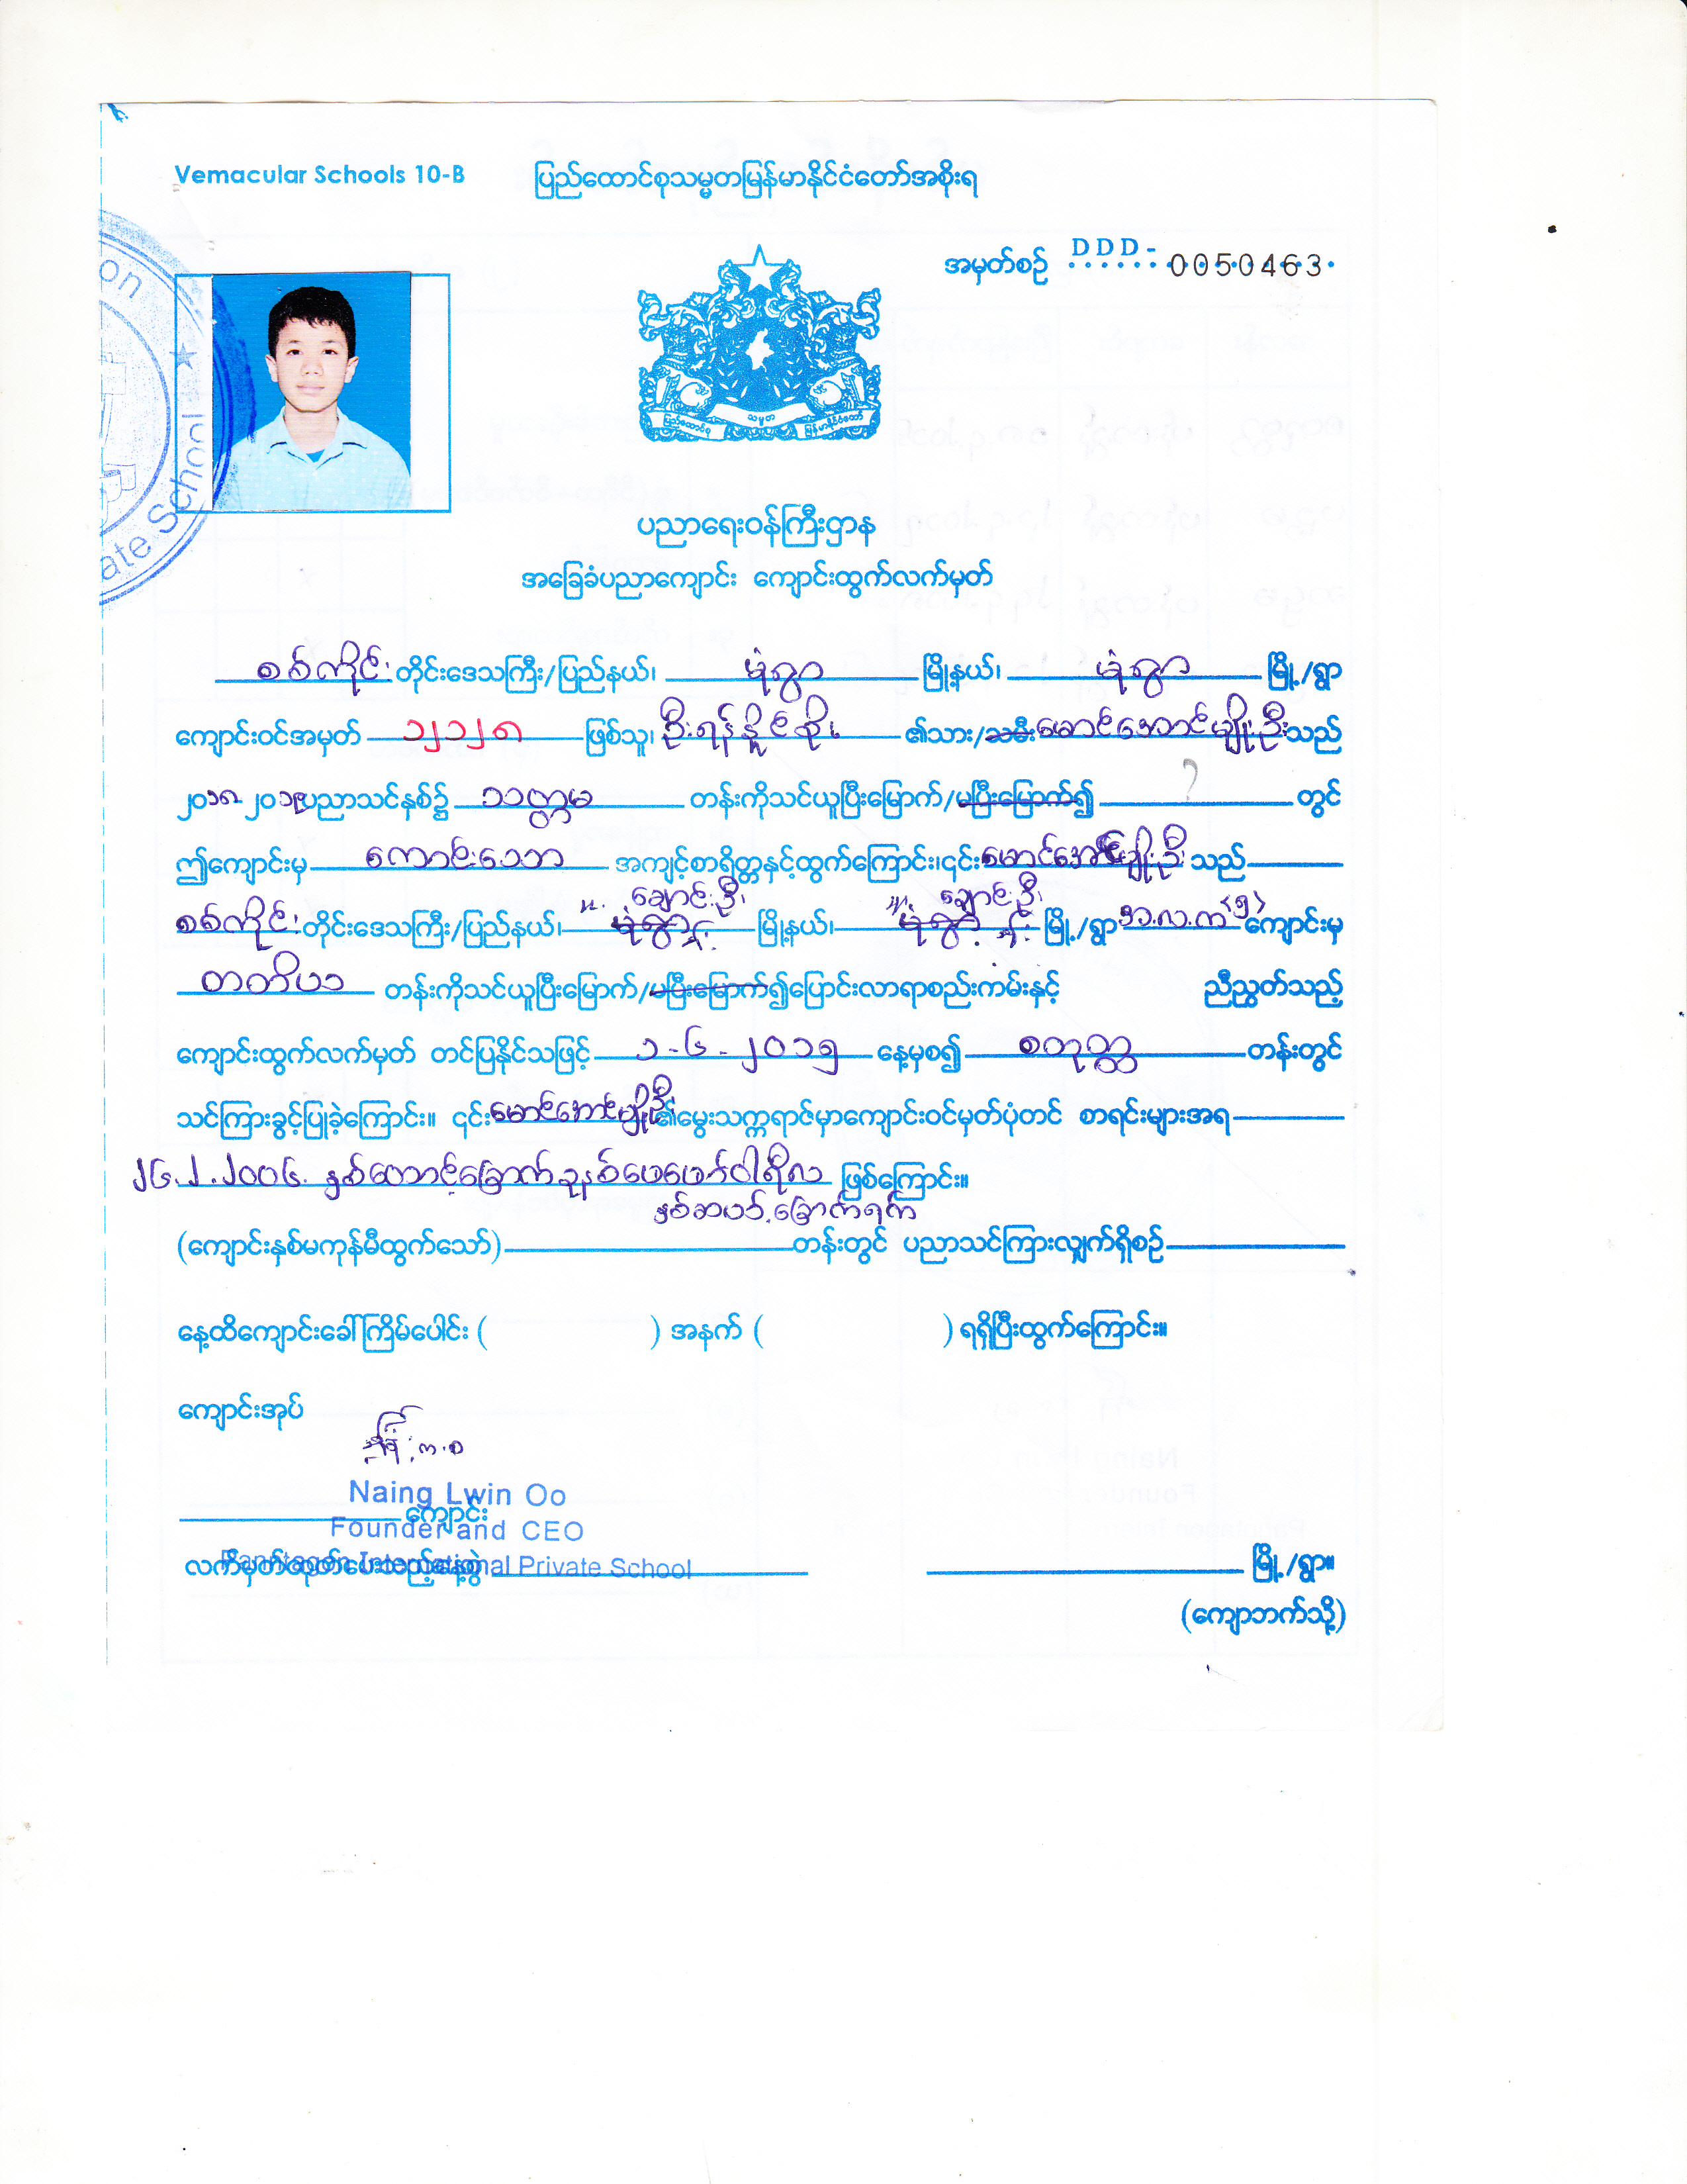 Vernacular Schools 10-B ပြည်ထောင်စုသမ္မတမြန်မာနိုင်ငံတော်အစိုးရ
အမှတ်စဉ် DDD-0050463
ပြည်ထောင်စု သမ္မတ မြန်မာနိုင်ငံတော်
ate School
ပညာရေးဝန်ကြီးဌာန
အခြေခံပညာကျောင်း ကျောင်းထွက်လက်မှတ်
စစ်ကိုင်း တိုင်းဒေသကြီး/ပြည်နယ်၊ မုံရွာ မြို့နယ်၊ မုံရွာ မြို့/ရွာ
ကျောင်းဝင်အမှတ် ၁၂၁၂၈ ဖြစ်သူ၊ ဦးရန်နိုင်စိုး ၏သား/သမီး မောင်အောင်မျိုးဦး သည်
၂၀၁၈-၂၀၁၉ပညာသင်နှစ်၌ သတ္တမ တန်းကိုသင်ယူပြီးမြောက်/မပြီးမြောက်၍ တွင်
ဤကျောင်းမှ ကောင်းသော အကျင့်စာရိတ္တနှင့်ထွက်ကြောင်း၊၎င်း မောင်အောင်မျိုးဦး သည်
ချောင်းဦး ချောင်းဦး
စစ်ကိုင်း တိုင်းဒေသကြီး/ပြည်နယ်၊ မုံရွာ မြို့နယ်၊ မုံရွာ မြို့/ရွာ အ.လ.က (၅) ကျောင်းမှ
တတိယ တန်းကိုသင်ယူပြီးမြောက်/မပြီးမြောက်၍ပြောင်းလာရာစည်းကမ်းနှင့် ညီညွတ်သည့်
ကျောင်းထွက်လက်မှတ် တင်ပြနိုင်သဖြင့် ၁-၆-၂၀၁၅ နေ့မှစ၍ စတုတ္ထ တန်းတွင်
သင်ကြားခွင့်ပြုခဲ့ကြောင်း။ ၎င်း မောင်အောင်မျိုးဦး ၏မွေးသက္ကရာဇ်မှာကျောင်းဝင်မှတ်ပုံတင် စာရင်းများအရ
၂၆.၂.၂၀၀၆. နှစ်ထောင့်ခြောက်ခုနှစ်ဖေဖော်ဝါရီလ ဖြစ်ကြောင်း။
နှစ်ဆယ့်ခြောက်ရက်
(ကျောင်းနှစ်မကုန်မီထွက်သော်) တန်းတွင် ပညာသင်ကြားလျှက်ရှိစဉ်
နေ့ထိကျောင်းခေါ်ကြိမ်ပေါင်း ( ) အနက် ( ) ရရှိပြီးထွက်ကြောင်း။
ကျောင်းအုပ်
Naing Lwin Oo
ကျောင်း
Founder and CEO
International Private School
လက်မှတ်ထုတ်ပေးသည့်နေ့စွဲ မြို့/ရွာ။
(ကျောဘက်သို့)